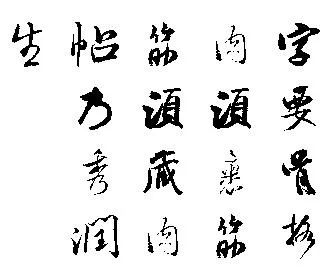 字要骨格
肉須裹筋
筋須藏肉
帖乃秀潤
生